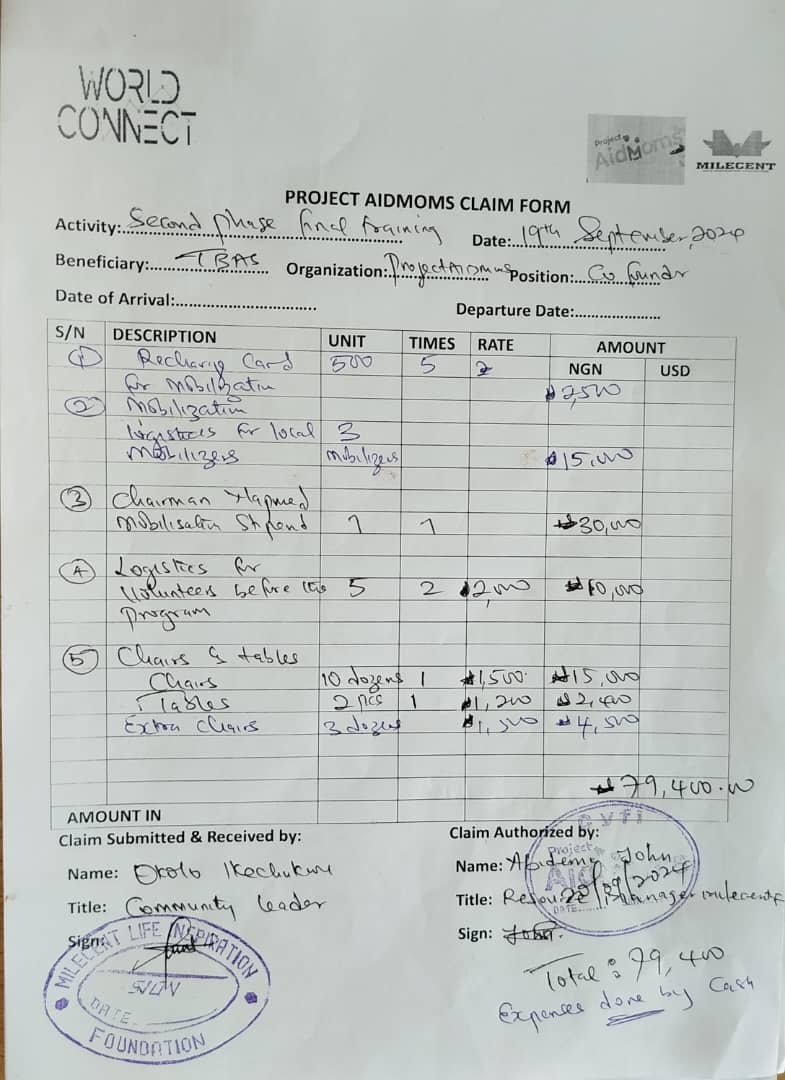 WORLD
CONNECT
Project
AidMoms
MILECENT
PROJECT AIDMOMS CLAIM FORM
Activity: Second phase final training Date: 19th September, 2024
Beneficiary: TBAS Organization: Project Aidmoms Position: Co foundr
Date of Arrival: Departure Date:
S/N DESCRIPTION UNIT TIMES RATE AMOUNT
NGN USD
1 Recharge Card 500 5
for mobilization ₦2,500
2 Mobilization
logistics for local 3
mobilizers mobilizers ₦15,000
3 Chairman
mobilisation Stipend 1 1 ₦30,000
4 Logistics for
Volunteers before the 5 2 ₦2,000 ₦10,000
program
5 Chairs & tables
Chairs 10 dozens 1 ₦1,500 ₦15,000
Tables 2 pcs 1 ₦1,200 ₦2,400
Extra Chairs 3 dozens ₦1,500 ₦4,500
₦79,400.00
AMOUNT IN
Claim Submitted & Received by: Claim Authorized by:
Name: Okolo Ikechukwu Name: Abidemi John
Title: Community leader Title: Resource Manager
Sign: Sign: John
MILECENT LIFE INSPIRATION
SIGN
DATE
FOUNDATION
Project
DATE
Total: 79,400
Expenses done by Cash